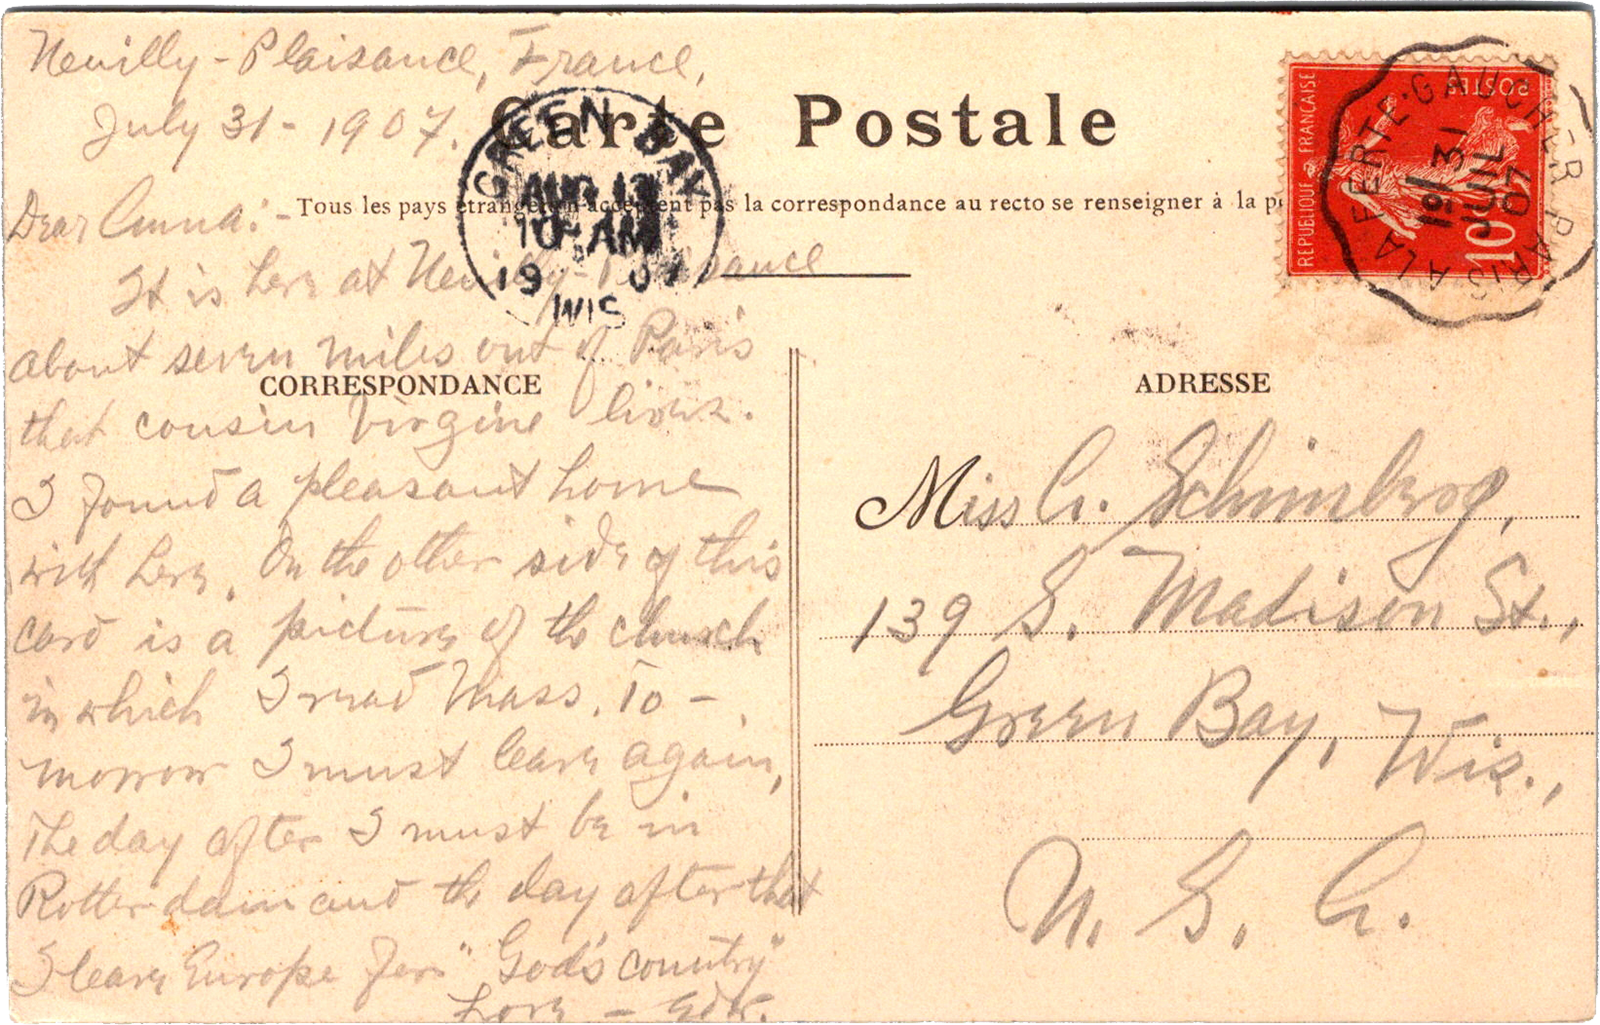 Neuilly-Plaisance, France,
July 31 - 1907.
Carte Postale
Tous les pays étrangers n'acceptent pas la correspondance au recto se renseigner à la p
GREEN BAY
AUG 13
10 - AM
1907
WIS
REPUBLIQUE FRANÇAISE
POSTES
10
LA FERTE-GAUCHER PARIS A
31
JUIL
07
CORRESPONDANCE
Dear Anna:-
It is here at Neuilly-Plaisance
about seven miles out of Paris
that cousin Virgine lives.
I found a pleasant home
with here. On the other side of this
card is a picture of the church
in which I read Mass. To-
morrow I must leave again,
The day after I must be in
Rotterdam and the day after that
I leave Europe for "God's country"
Love - Edw.
ADRESSE
Miss A. Schimberg,
139 S. Madison St.,
Green Bay, Wis.,
U. S. A.